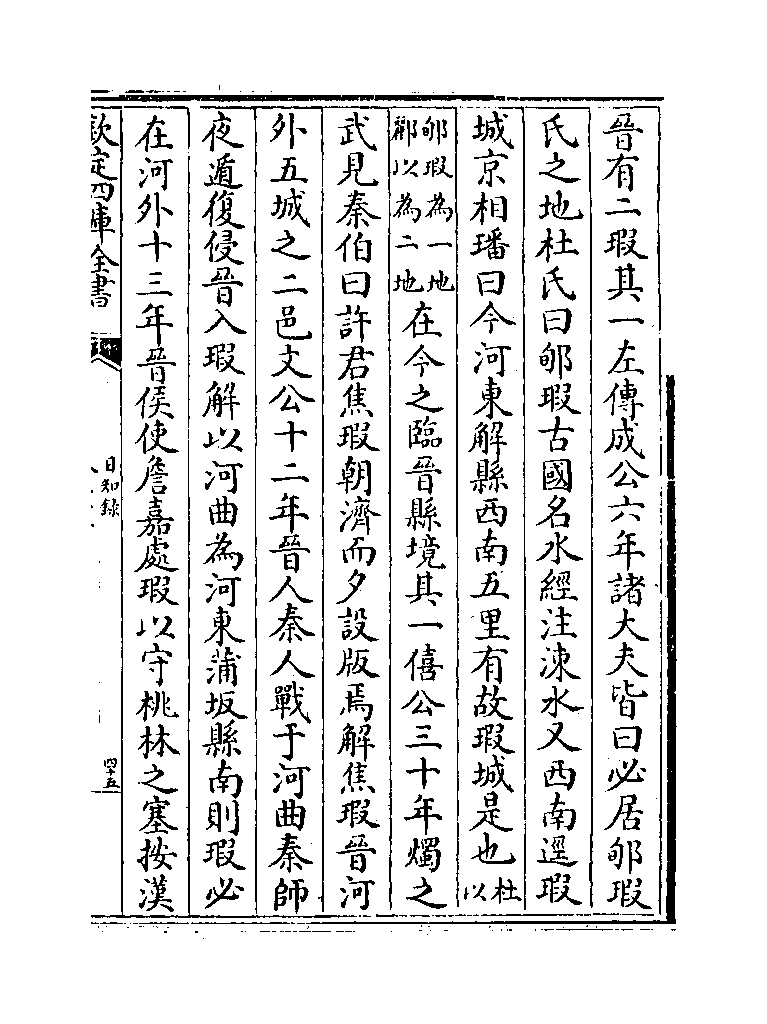 晉有二瑕其一左傳成公六年諸大夫皆曰必居郇瑕
氏之地杜氏曰郇瑕古國名水經注涑水又西南逕瑕
城京相璠曰今河東解縣西南五里有故瑕城是也杜以
郇瑕為一地酈以為二地在今之臨晉縣境其一僖公三十年燭之
武見秦伯曰許君焦瑕朝濟而夕設版焉解焦瑕晉河
外五城之二邑文公十二年晉人秦人戰于河曲秦師
夜遁復侵晉入瑕解以河曲為河東蒲坂縣南則瑕必
在河外十三年晉侯使詹嘉處瑕以守桃林之塞按漢
欽定四庫全書
日知録
四十五